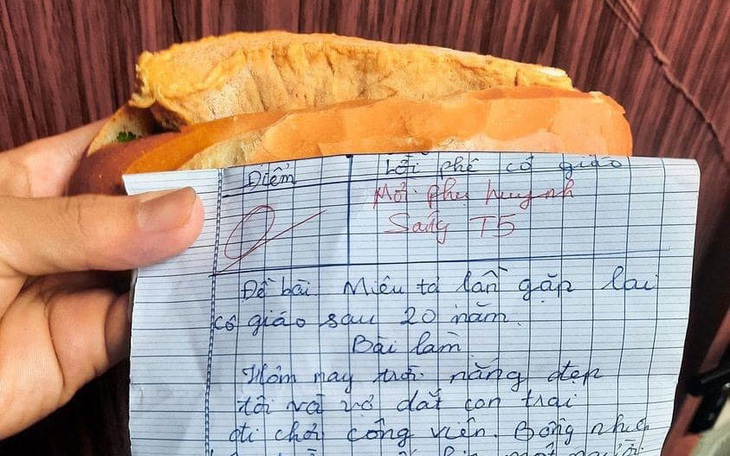 Điểm
Lời phê cô giáo
Mời phụ huynh
Sáng T5
0
Đề bài Miêu tả lần gặp lại
cô giáo sau 20 năm.
Bài làm
Hôm nay trời nắng đẹp
tôi và vợ dắt con trai
đi chơi công viên. Bỗng nhiên